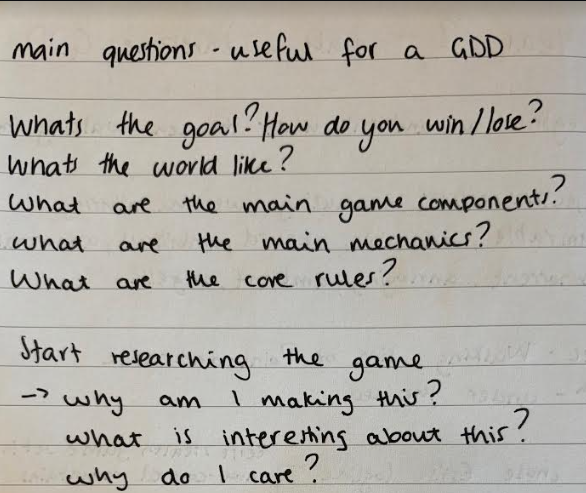 main questions - useful for a GDD
Whats the goal? How do you win/lose?
Whats the world like?
What are the main game components?
What are the main mechanics?
What are the core rules?
Start researching the game
-> why am I making this?
what is interesting about this?
why do I care?